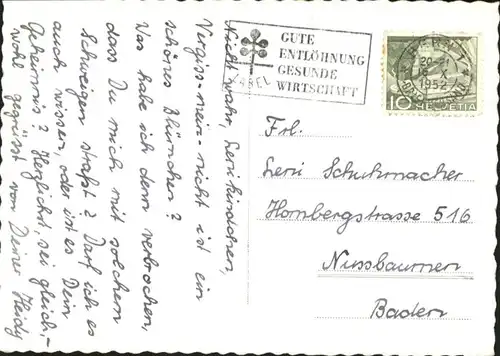 Nicht wahr, Lenikindchen,
Vergiss-mein-nicht ist ein
schönes Blümchen?
Was habe ich denn verbrochen,
dass Du mich mit solchem
Schweigen strafst? Darf ich es
auch wissen, oder ist es Dein
Geheimnis? Herzlichst, sei gleich-
wohl gegrüsst von Deiner Heidy
GUTE
ENTLÖHNUNG
GESUNDE
WIRTSCHAFT
LABEL
20-21
X
1952
10 HELVETIA
Frl.
Leni Schuhmacher
Hombergstrasse 516
Nussbaumen
Baden